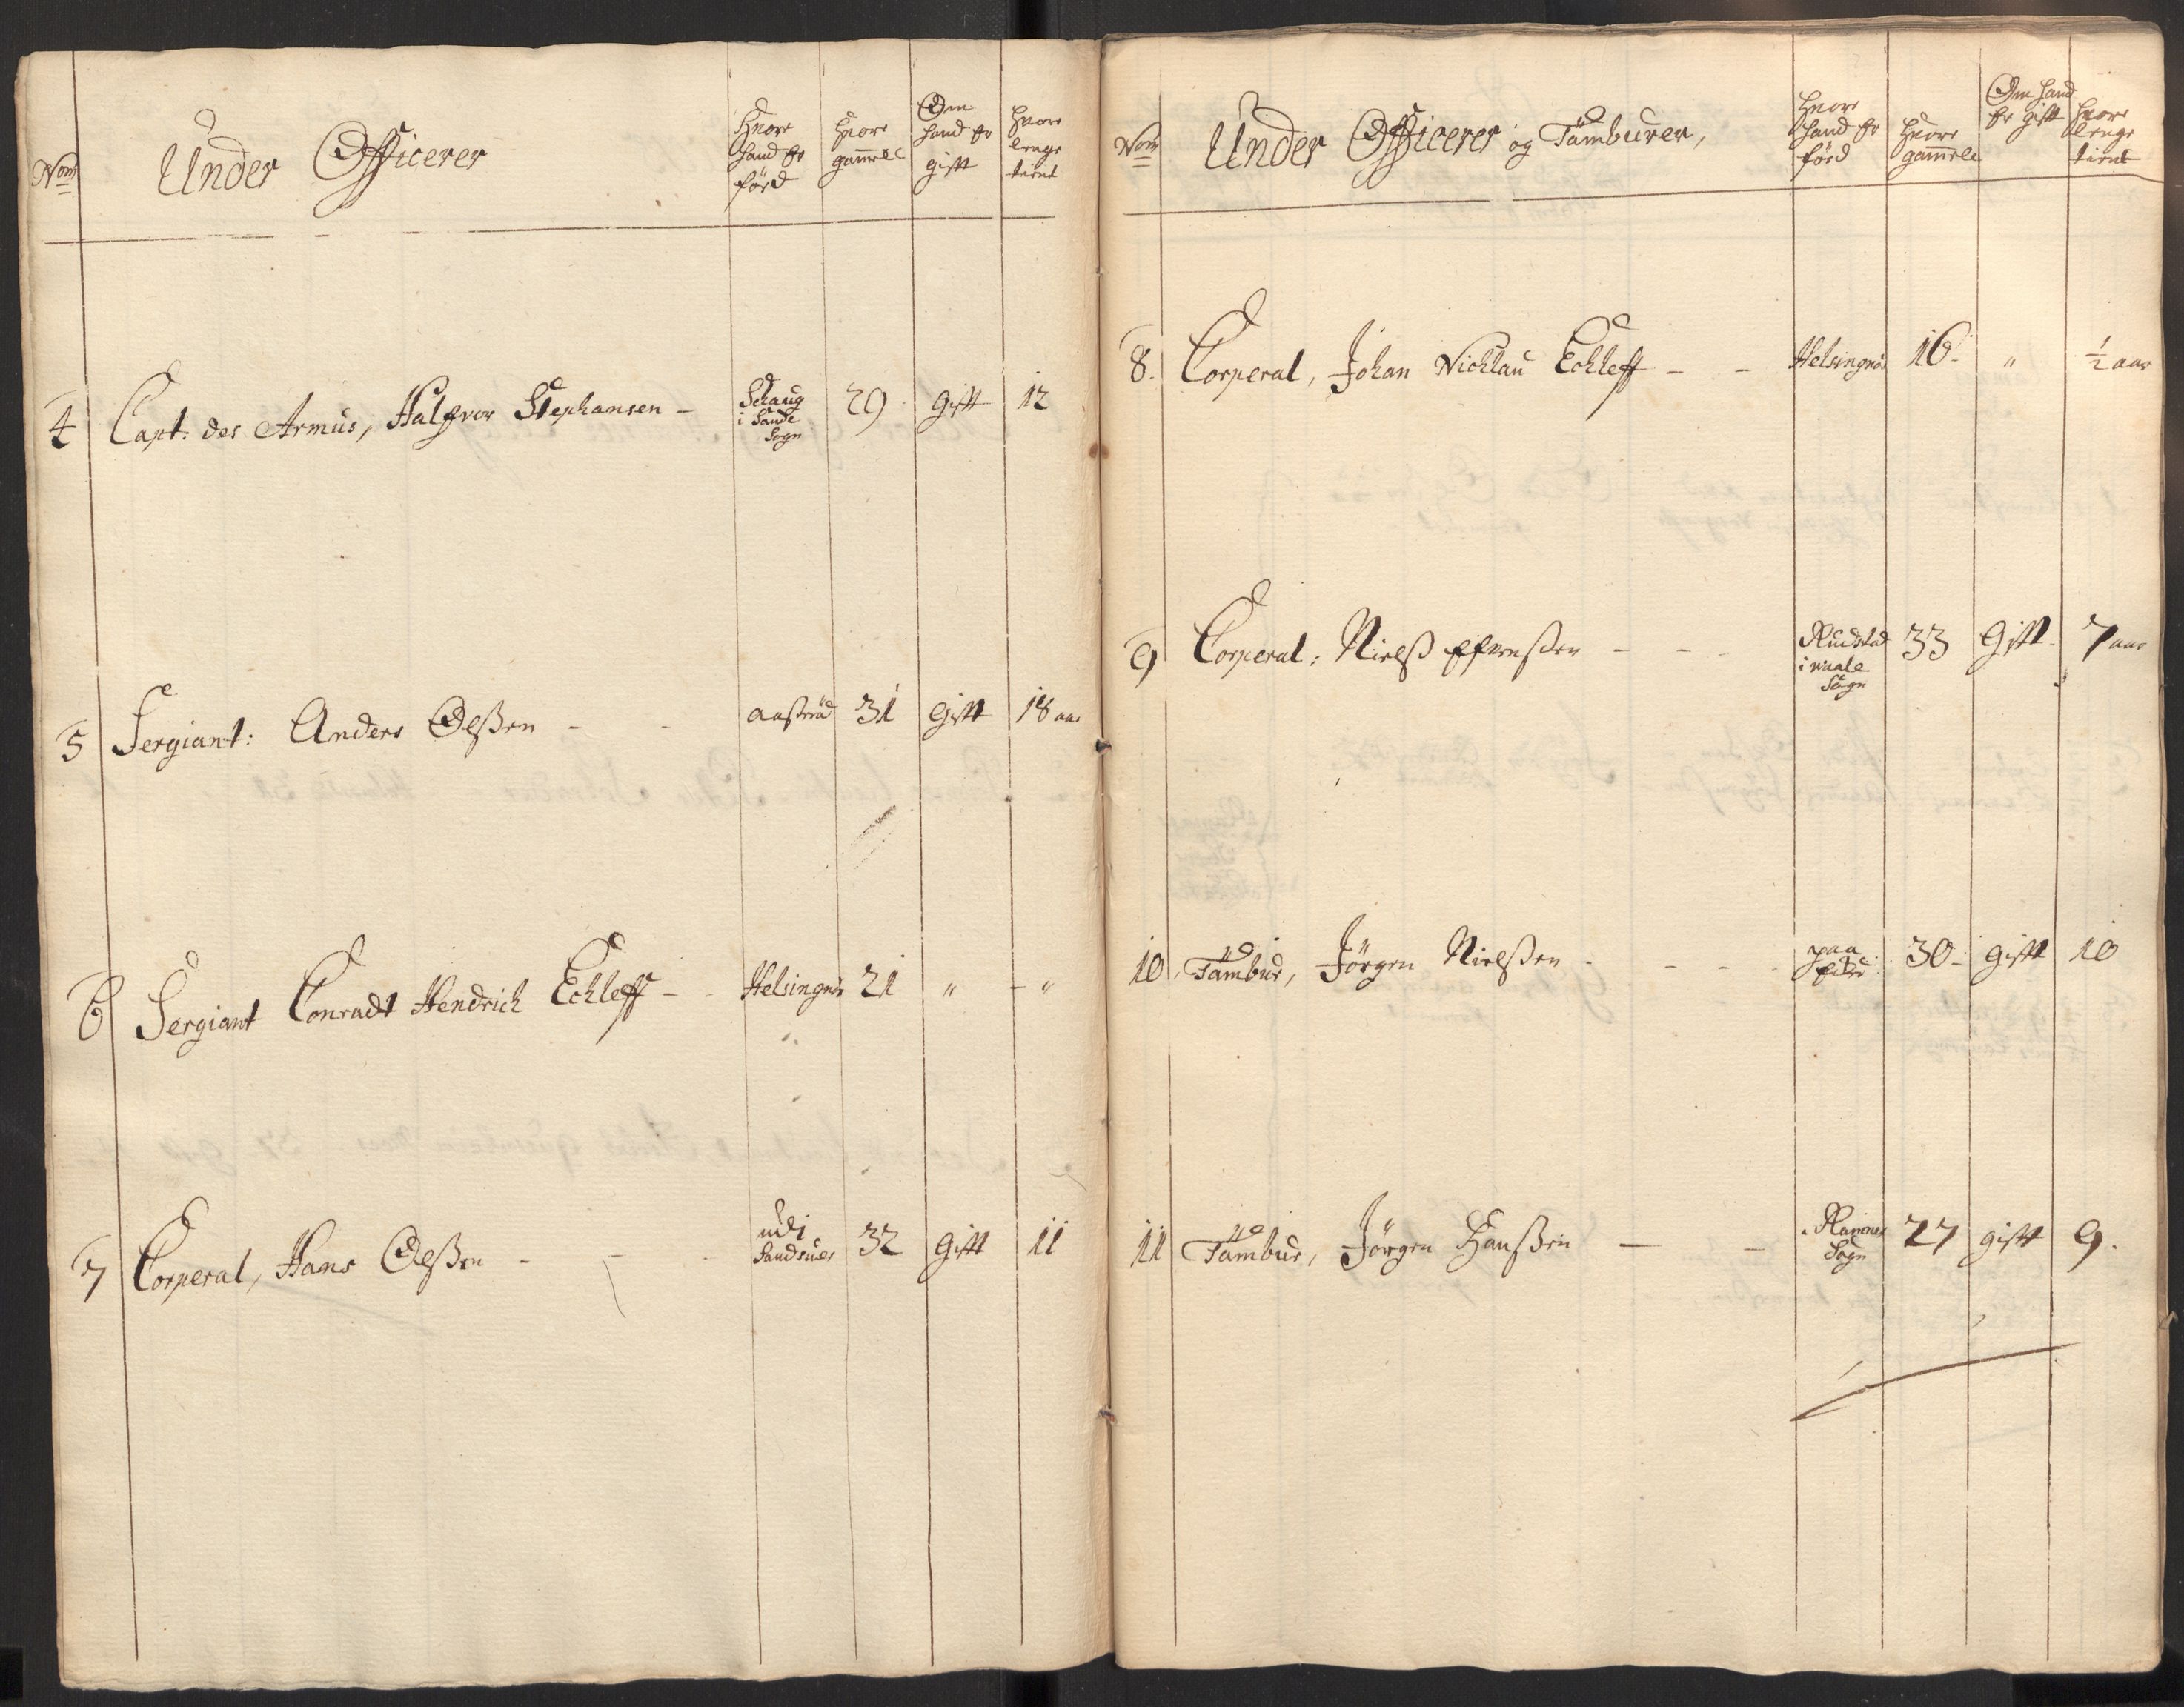 Nom Under Officerer Hvor hand er föed Hvor gammel Om hand er gift Hvor lenge tient
4 Capt: des Armüs, Halgvor Stephansen - Schaug i Sande Sogn 29 Gift 12
5 Sergiant: Anders Olßen - - 31 Gift 18 aar
6 Sergiant Conradt Hendrich Echleff - - Helsingnör 21 " - "
7 Corperal, Hans Olßen - - - udi Sandsuer 32 Gift 11
Nom Under Officerer og Tamburer, Hvor hand er föed Hvor gammel Om hand er gift Hvor lenge tient
8. Corperal, Johan Nichlau Echleff - - Helsingnör 16. " ½ aar
9 Corperal: Nielß - - - Rudstad i waale Sogn 33 Gift - 7 aar
10. Tambur, Jörgen Nielßen - - - - paa 30 - gift 10
11 Tambur, Jörgen Hanßen - - Ramnes Sogn 27 gift 9.